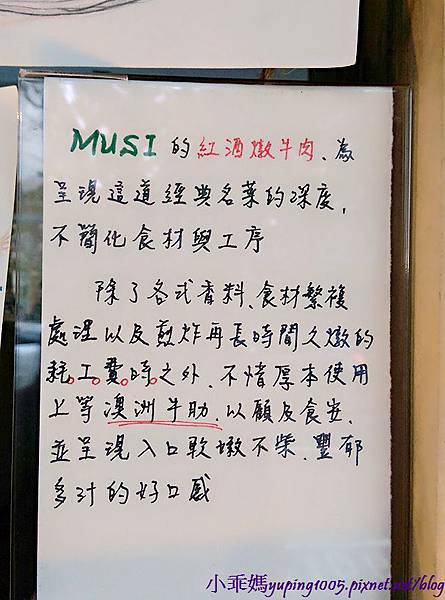 MUSI 的紅酒燉牛肉、為
呈現這道經典名菜的深度,
不簡化食材與工序
除了各式香料、食材繁複
處理以及煎炸再長時間久燉的
耗工費時之外、不惜厚本使用
上等澳洲牛肋、以顧及食安、
並呈現入口軟嫩不柴、豐郁
多汁的好口感
小乖媽yuping1005.pixnet.net/blog